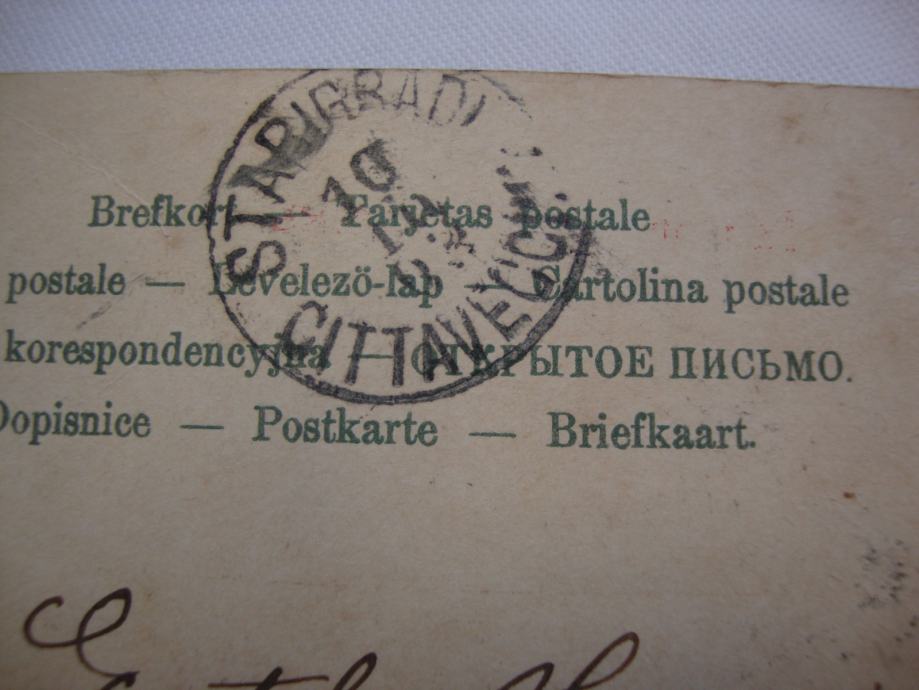 STARIGRAD
10
CITTAVECCHIA
Brefkort — Tarjetas postale
postale — Levelező-lap — Cartolina postale
korespondencyjna — ОТКРЫТОЕ ПИСЬМО.
Dopisnice — Postkarte — Briefkaart.